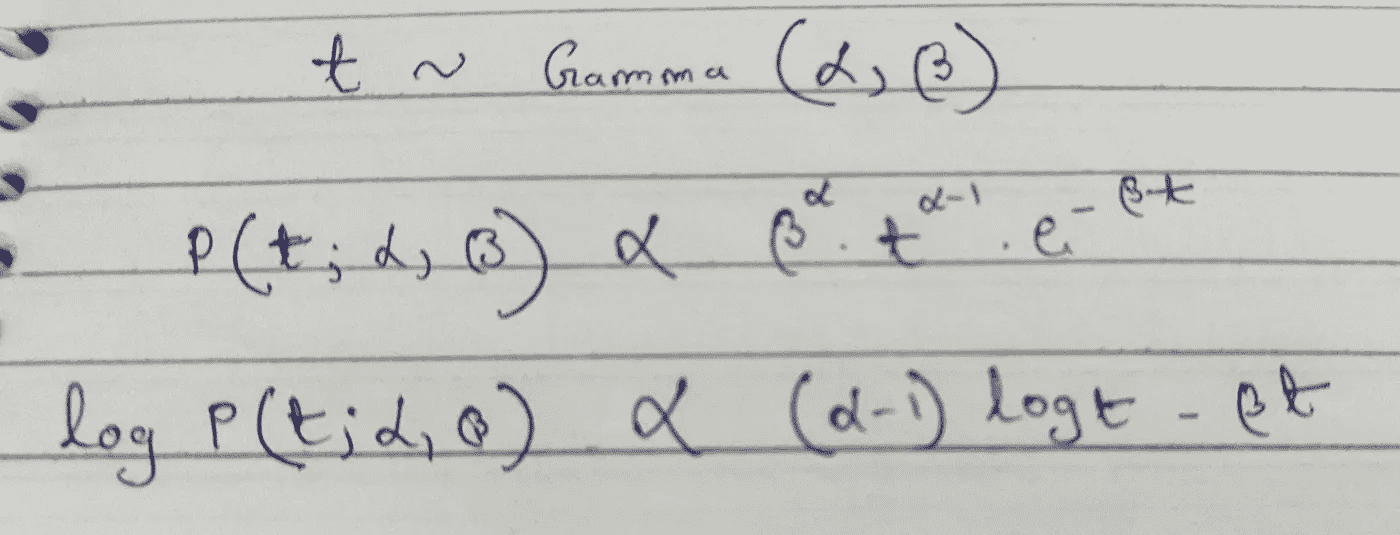 t ~ Gamma (α, β)
P(t; α, β) ∝ β^α . t^(α-1) . e^(-β.t)
log P(t; α, β) ∝ (α-1) log t - βt